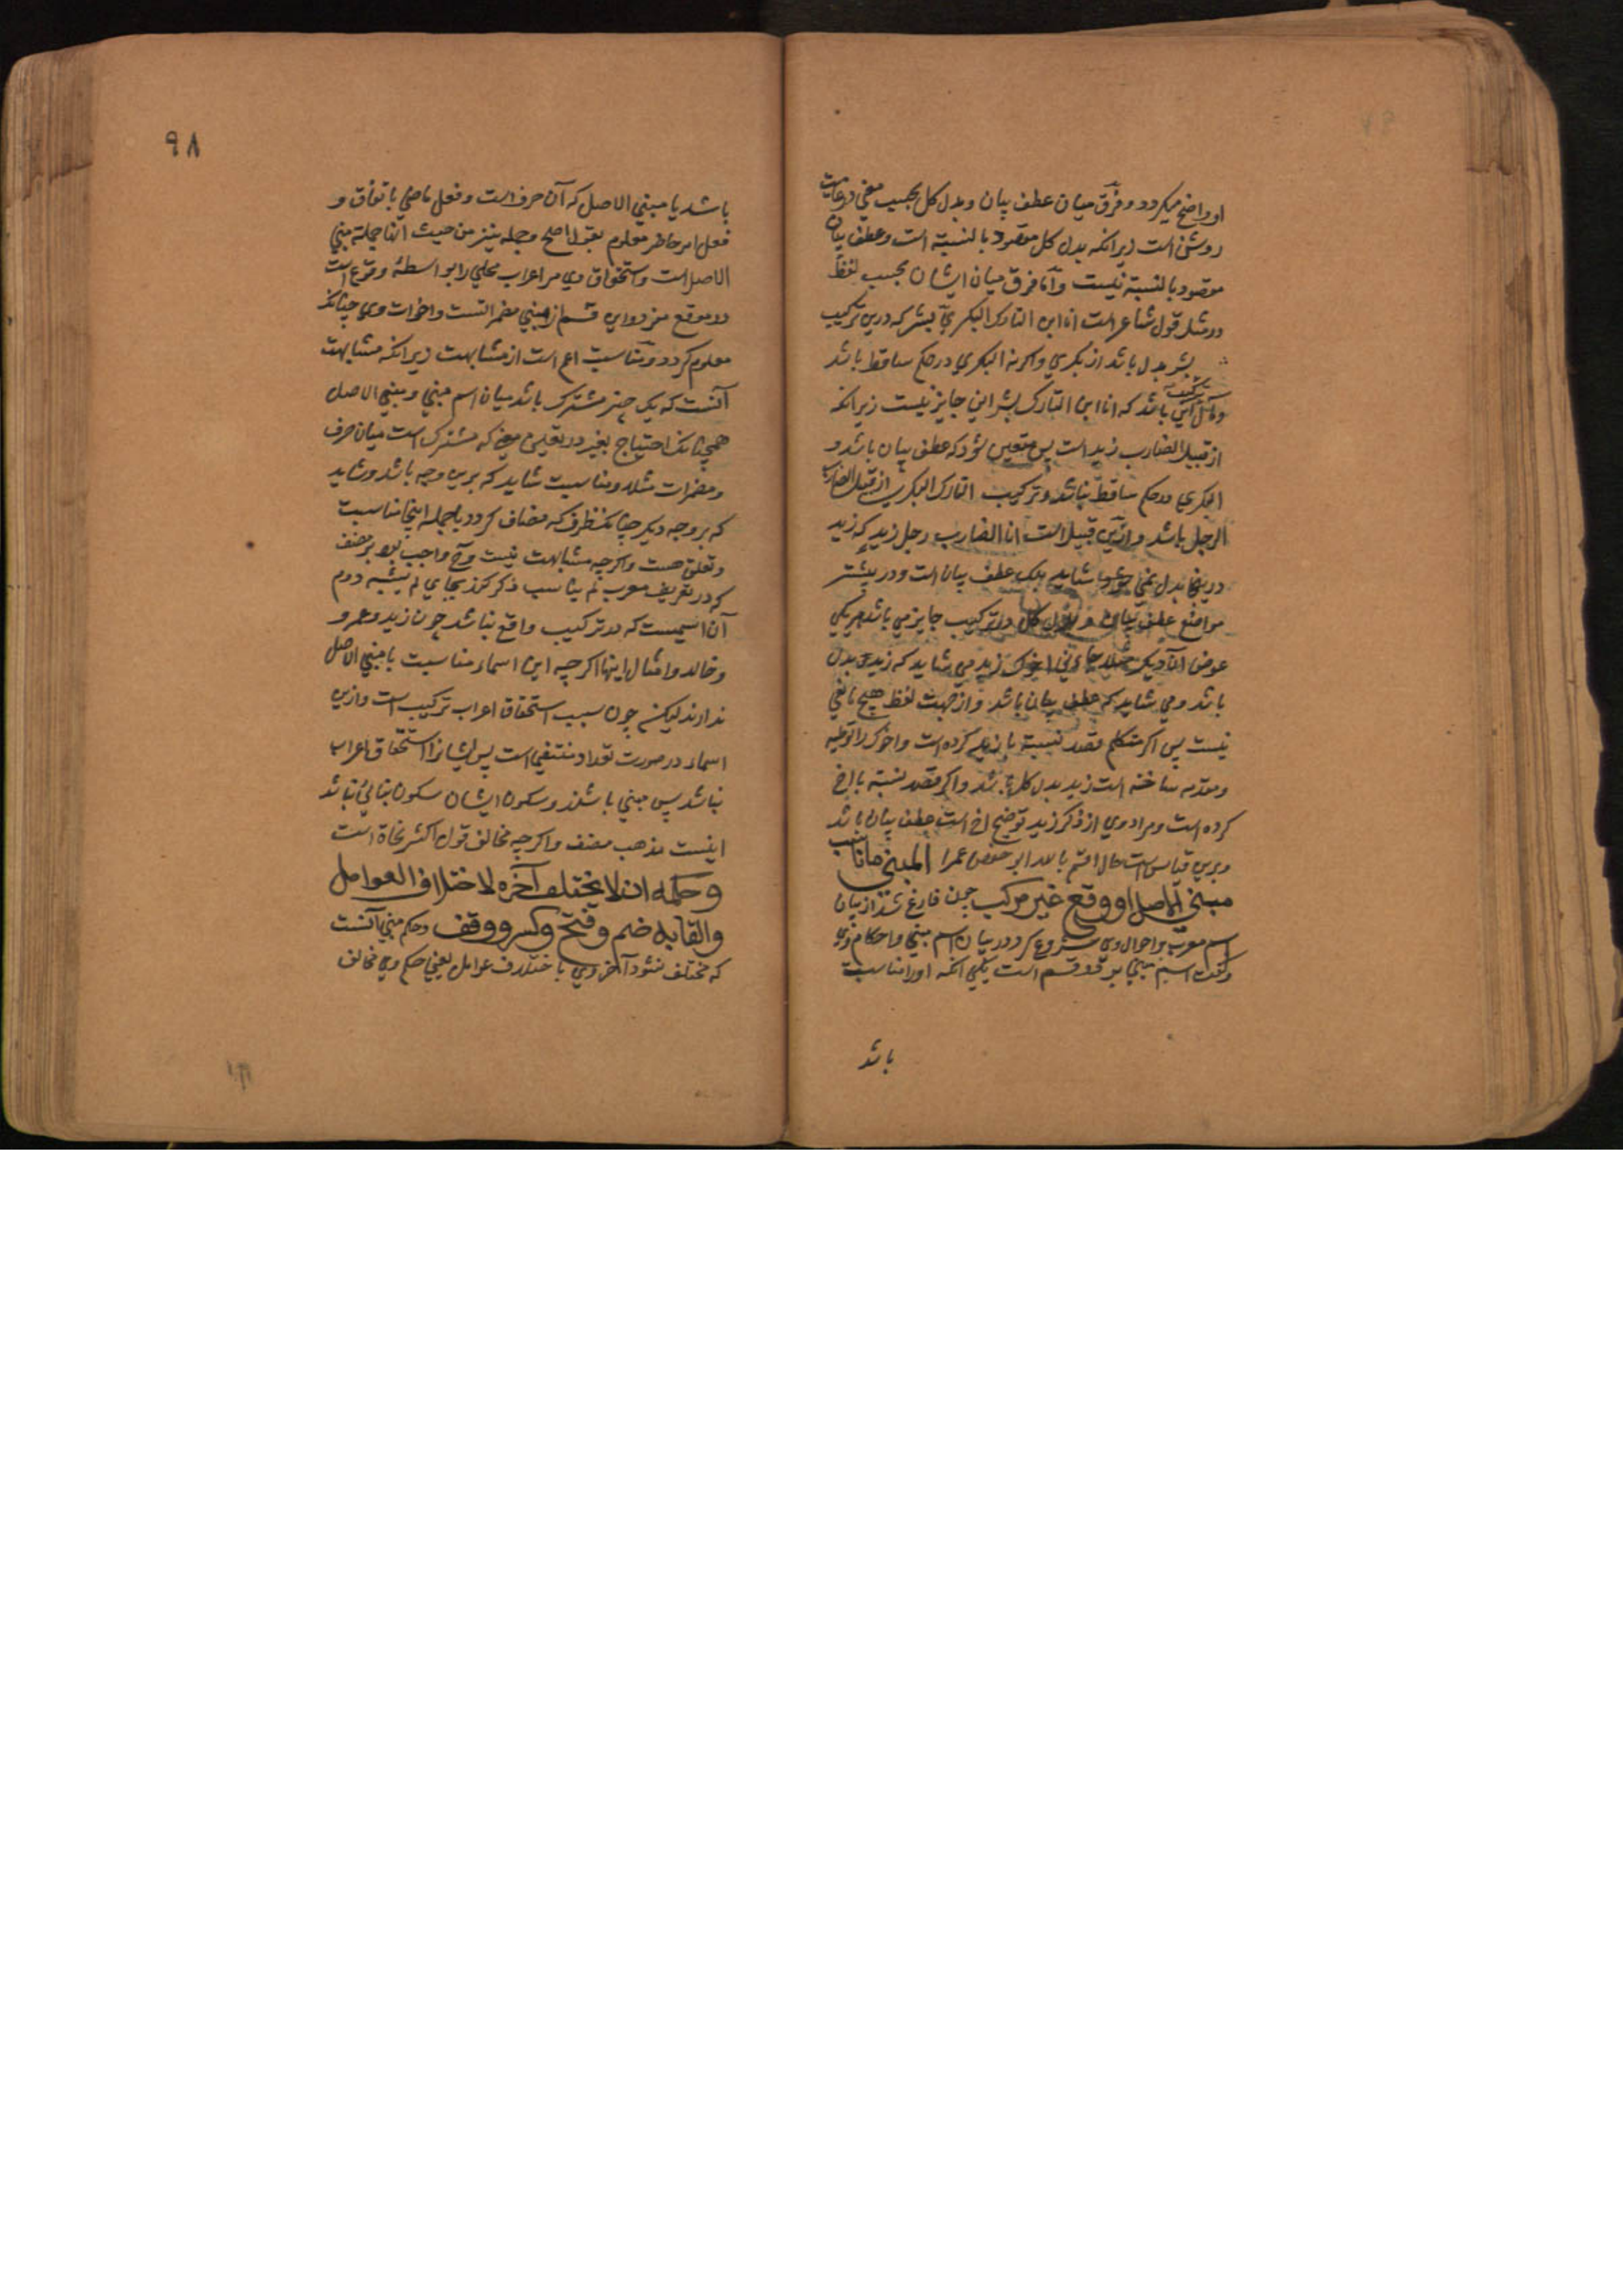 او واضح میکردد و فرق میان عطف بیان و بدل کل بحسب معنی در غایت
روشنی است زیرانکه بدل کل مقصود بالنسبة است و عطف بیان
مقصود بالنسبة نیست و اما فرق میان ایشان بحسب لفظ
در مثل قول شاعر است انا ابن التارک البکری بشر که درین ترکیب
بشر بدل باشد از بکری واکرنه البکری در حکم ساقط باشد
باشد که انا ابن التارک بشر این جایز نیست زیرانکه
از قبیل الضارب زید است پس متعین شود که عطف بیان باشد و
البکری در حکم ساقط نباشد و ترکیب التارک البکری از قبیل الضارب
الرجل باشد و ازین قبیل است انا الضارب رجل زید که زید
درینجا بدل نمی شاید بلک عطف بیان است و در بیشتر
مواضع عطف بیان و بدل کل در ترکیب جایز می باشد هریکی
عوض آن دیکر مثلا جاءنی اخوک زید می شاید که زید بدل
باشد و می شاید که عطف بیان باشد و از جهت لفظ هیچ مانعی
نیست پس اکر متکلم قصد نسبت بازید کرده است و اخوک را توطیه
و مقدمه ساخته است زید بدل کل باشد و اکر قصد نسبة با اخ
کرده است و مراد وی از ذکر زید توضیح اخ است عطف بیان باشد
و برین قیاس است حال اقسم بالله ابو حفص عمر المبنی ما ناسب
مبنی الاصل او وقع غیر مرکب چون فارغ شد از بیان
اسم معرب و احوال وی شروع کرد در بیان اسم مبنی و احکام وی
و کفت اسم مبنی بر دو قسم است یکی آنکه او را مناسبت
باشد
۹۸
باشد با مبنی الاصل که آن حرف است و فعل ماضی باتفاق و
فعل امر حاضر معلوم بقول اصح و جمله نیز من حیث انها جملة مبنی
الاصل است و استحقاق وی مر اعراب محلی را بواسطهٔ وقوع است
در موقع مفرد و این قسم از مبنی مضمراتست و اخوات وی چنانکه
معلوم کردد و مناسبت اعم است از مشابهت زیرانکه مشابهت
آنست که یک چیز مشترک باشد میان اسم مبنی و مبنی الاصل
همچنانک احتیاج بغیر در تعیین معنی که مشترک است میان حرف
و مضمرات مثلا و مناسبت شاید که برین وجه باشد و شاید
که بر وجه دیکر چنانک ظرف که مضاف کردد با جمله اینجا مناسبت
و تعلق هست و اکرچه مشابهت نیست و واجب بود بر مصنف
که در تعریف معرب لم یناسب ذکر کند بجای لم یشبه دوم
آن اسمیست که در ترکیب واقع نباشد چون زید و عمرو
و خالد و امثال اینها اکرچه این اسماء مناسبت با مبنی الاصل
ندارند لیکن چون سبب استحقاق اعراب ترکیب است و ازین
اسماء در صورت تعداد منتفی است پس ایشانرا استحقاق اعراب
نباشد پس مبنی باشند و سکون ایشان سکون بنائی باشد
اینست مذهب مصنف و اکرچه مخالف قول اکثر نحاة است
وحکمه ان لا یختلف آخره لاختلاف العوامل
والقابه ضم وفتح وکسر ووقف و حکم مبنی آنست
که مختلف نشود آخر وی باختلاف عوامل یعنی حکم وی مخالف